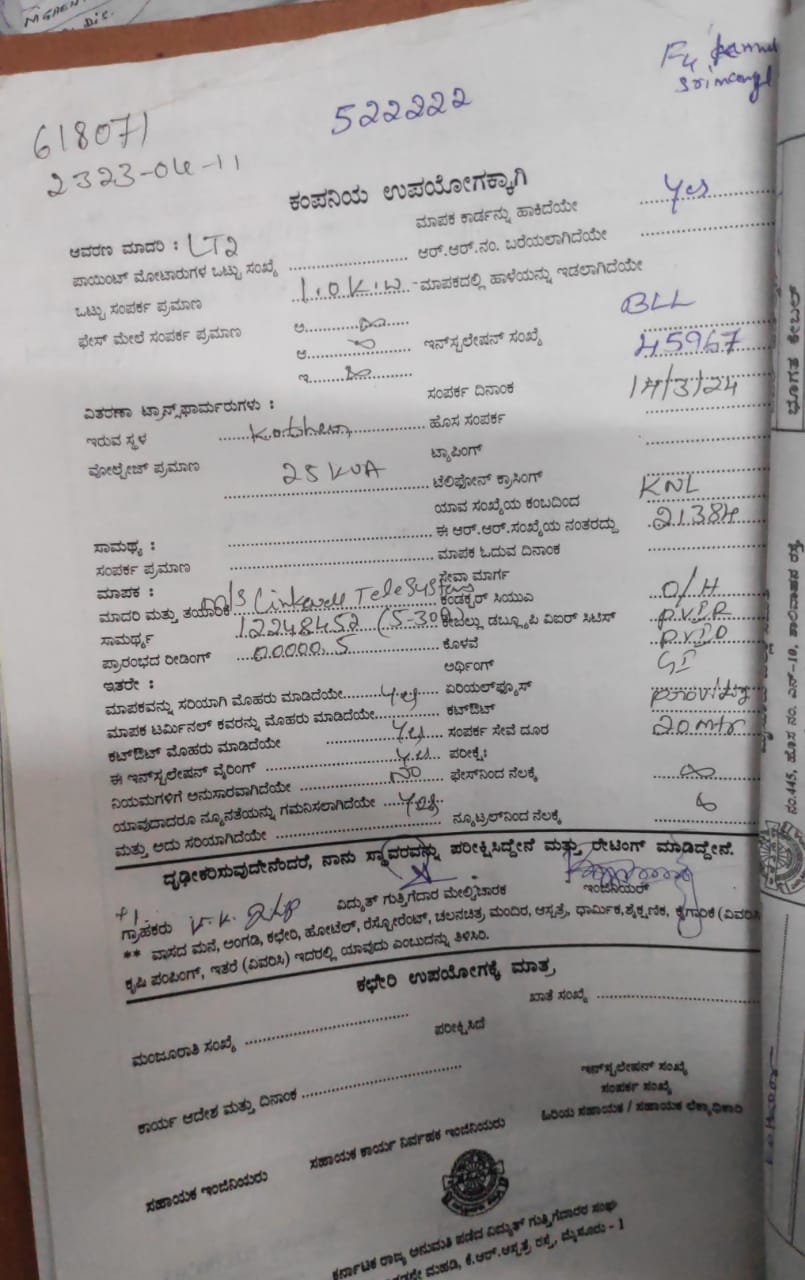 618071
2323-04-11
522222
ಕಂಪನಿಯ ಉಪಯೋಗಕ್ಕಾಗಿ
ಮಾಪಕ ಕಾರ್ಡನ್ನು ಹಾಕಿದೆಯೇ Yes
ಆವರಣ ಮಾದರಿ : LT2
ಆರ್.ಆರ್.ನಂ. ಬರೆಯಲಾಗಿದೆಯೇ
ಪಾಯಿಂಟ್ ಮೋಟಾರುಗಳ ಒಟ್ಟು ಸಂಖ್ಯೆ
ಒಟ್ಟು ಸಂಪರ್ಕ ಪ್ರಮಾಣ 1.0 K.W ಮಾಪಕದಲ್ಲಿ ಹಾಳೆಯನ್ನು ಇಡಲಾಗಿದೆಯೇ
ಫೇಸ್ ಮೇಲೆ ಸಂಪರ್ಕ ಪ್ರಮಾಣ ಅ.
BLL
ಆ. ಇನ್‌ಸ್ಟಲೇಷನ್ ಸಂಖ್ಯೆ 45967
ಇ.
ಸಂಪರ್ಕ ದಿನಾಂಕ 14/3/24
ವಿತರಣಾ ಟ್ರಾನ್ಸ್‌ಫಾರ್ಮರುಗಳು :
ಇರುವ ಸ್ಥಳ ಹೊಸ ಸಂಪರ್ಕ
ವೋಲ್ಟೇಜ್ ಪ್ರಮಾಣ 25 KVA ಟ್ಯಾಪಿಂಗ್
ಟೆಲಿಫೋನ್ ಕ್ರಾಸಿಂಗ್
ಯಾವ ಸಂಖ್ಯೆಯ ಕಂಬದಿಂದ KNL
ಸಾಮರ್ಥ್ಯ : ಈ ಆರ್.ಆರ್.ಸಂಖ್ಯೆಯ ನಂತರದ್ದು 21384
ಸಂಪರ್ಕ ಪ್ರಮಾಣ ಮಾಪಕ ಓದುವ ದಿನಾಂಕ
ಮಾಪಕ : ಸೇವಾ ಮಾರ್ಗ O/H
ಮಾದರಿ ಮತ್ತು ತಯಾರಿಕೆ M/S Linkwell TeleSystems ಕಂಡಕ್ಟರ್ ಸಿಯುಎ
ಸಾಮರ್ಥ್ಯ 12248452 (5-30A) ಕೇಬಲ್ಲು ಡಬ್ಲ್ಯೂಪಿ ವಿಐರ್ ಸಿಟಿಸ್
ಪ್ರಾರಂಭದ ರೀಡಿಂಗ್ 00000.5 ಕೊಳವೆ
ಇತರೇ : ಅರ್ಥಿಂಗ್ GI
ಮಾಪಕವನ್ನು ಸರಿಯಾಗಿ ಮೊಹರು ಮಾಡಿದೆಯೇ Yes ಏರಿಯಲ್‌ಫ್ಯೂಸ್
ಮಾಪಕ ಟರ್ಮಿನಲ್ ಕವರನ್ನು ಮೊಹರು ಮಾಡಿದೆಯೇ ಕಟ್‌ಔಟ್
ಕಟ್‌ಔಟ್ ಮೊಹರು ಮಾಡಿದೆಯೇ Yes ಸಂಪರ್ಕ ಸೇವೆ ದೂರ 20 mtr
ಈ ಇನ್‌ಸ್ಟಲೇಷನ್ ವೈರಿಂಗ್ Yes ಪರೀಕ್ಷೆ:
ನಿಯಮಗಳಿಗೆ ಅನುಸಾರವಾಗಿದೆಯೇ No ಫೇಸ್‌ನಿಂದ ನೆಲಕ್ಕೆ
ಯಾವುದಾದರೂ ನ್ಯೂನತೆಯನ್ನು ಗಮನಿಸಲಾಗಿದೆಯೇ Yes
ಮತ್ತು ಅದು ಸರಿಯಾಗಿದೆಯೇ ನ್ಯೂಟ್ರಲ್‌ನಿಂದ ನೆಲಕ್ಕೆ
ದೃಢೀಕರಿಸುವುದೇನೆಂದರೆ, ನಾನು ಸ್ಥಾವರವನ್ನು ಪರೀಕ್ಷಿಸಿದ್ದೇನೆ ಮತ್ತು ರೇಟಿಂಗ್ ಮಾಡಿದ್ದೇನೆ.
ಗ್ರಾಹಕರು ವಿದ್ಯುತ್ ಗುತ್ತಿಗೆದಾರ ಮೇಲ್ವಿಚಾರಕ ಇಂಜಿನಿಯರ್
** ವಾಸದ ಮನೆ, ಅಂಗಡಿ, ಕಛೇರಿ, ಹೋಟೆಲ್, ರೆಸ್ಟೋರೆಂಟ್, ಚಲನಚಿತ್ರ, ಮಂದಿರ, ಆಸ್ಪತ್ರೆ, ಧಾರ್ಮಿಕ,ಶೈಕ್ಷಣಿಕ, ಕೈಗಾರಿಕೆ (ವಿವರಿಸಿ
ಕೃಷಿ ಪಂಪಿಂಗ್, ಇತರೆ (ವಿವರಿಸಿ) ಇದರಲ್ಲಿ ಯಾವುದು ಎಂಬುದನ್ನು ತಿಳಿಸಿರಿ.
ಕಛೇರಿ ಉಪಯೋಗಕ್ಕೆ ಮಾತ್ರ
ಖಾತೆ ಸಂಖ್ಯೆ
ಮಂಜೂರಾತಿ ಸಂಖ್ಯೆ ಪರೀಕ್ಷಿಸಿದೆ
ಕಾರ್ಯ ಆದೇಶ ಮತ್ತು ದಿನಾಂಕ
ಇನ್‌ಸ್ಟಲೇಷನ್ ಸಂಖ್ಯೆ
ಸಂಪರ್ಕ ಸಂಖ್ಯೆ
ಹಿರಿಯ ಸಹಾಯಕ / ಸಹಾಯಕ ಲೆಕ್ಕಾಧಿಕಾರಿ
ಸಹಾಯಕ ಇಂಜಿನಿಯರು ಸಹಾಯಕ ಕಾರ್ಯ ನಿರ್ವಾಹಕ ಇಂಜಿನಿಯರು
ಕರ್ನಾಟಕ ರಾಜ್ಯ ಅನುಮತಿ ಪಡೆದ ವಿದ್ಯುತ್ ಗುತ್ತಿಗೆದಾರರ ಸಂಘ
ಮಹಡಿ, ಕೆ.ಆರ್.ಆಸ್ಪತ್ರೆ ರಸ್ತೆ, ಮೈಸೂರು - 1
ಭೂಗತ ಕೇಬಲ್